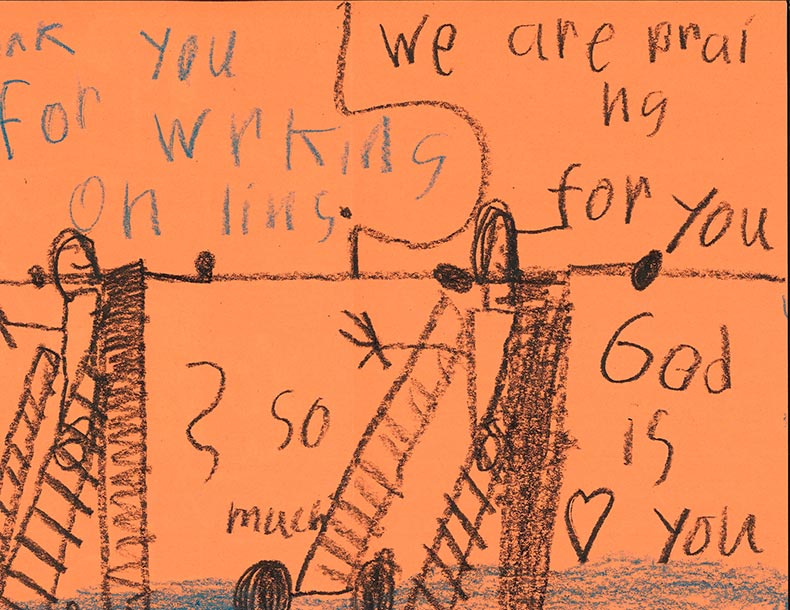 ank you
For wrKing
On lins
so
much
We are prai
ng
for you
God
is
♡ you